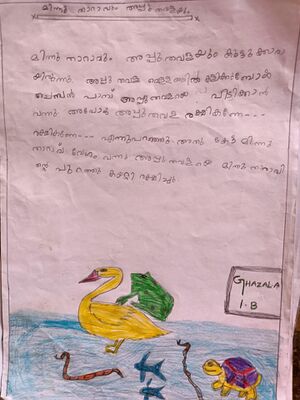 മിന്നു താറാവും അപ്പു തവളയും
മിന്നു താറാവും അപ്പു തവളയും കൂട്ടുക്കാരാ
യിരുന്നു. അപ്പു തവള വെള്ളത്തിൽ കളിക്കുബോൾ
ചെമ്പൻ പാമ്പ് അപ്പു തവളയെ പിട്ടിക്കാൻ
വന്നു അപ്പോൾ അപ്പു തവള രക്ഷിക്കണേ---
രക്ഷിക്കണേ--- എന്നുപറഞ്ഞു. കേട്ട് മിന്നു
താറാവ് വേഗം വന്നു അപ്പു തവളയെ മിന്നു താറാവി
ന്റെ പുറത്തു കയറ്റി രക്ഷിച്ചു.
GHAZALA
1.B